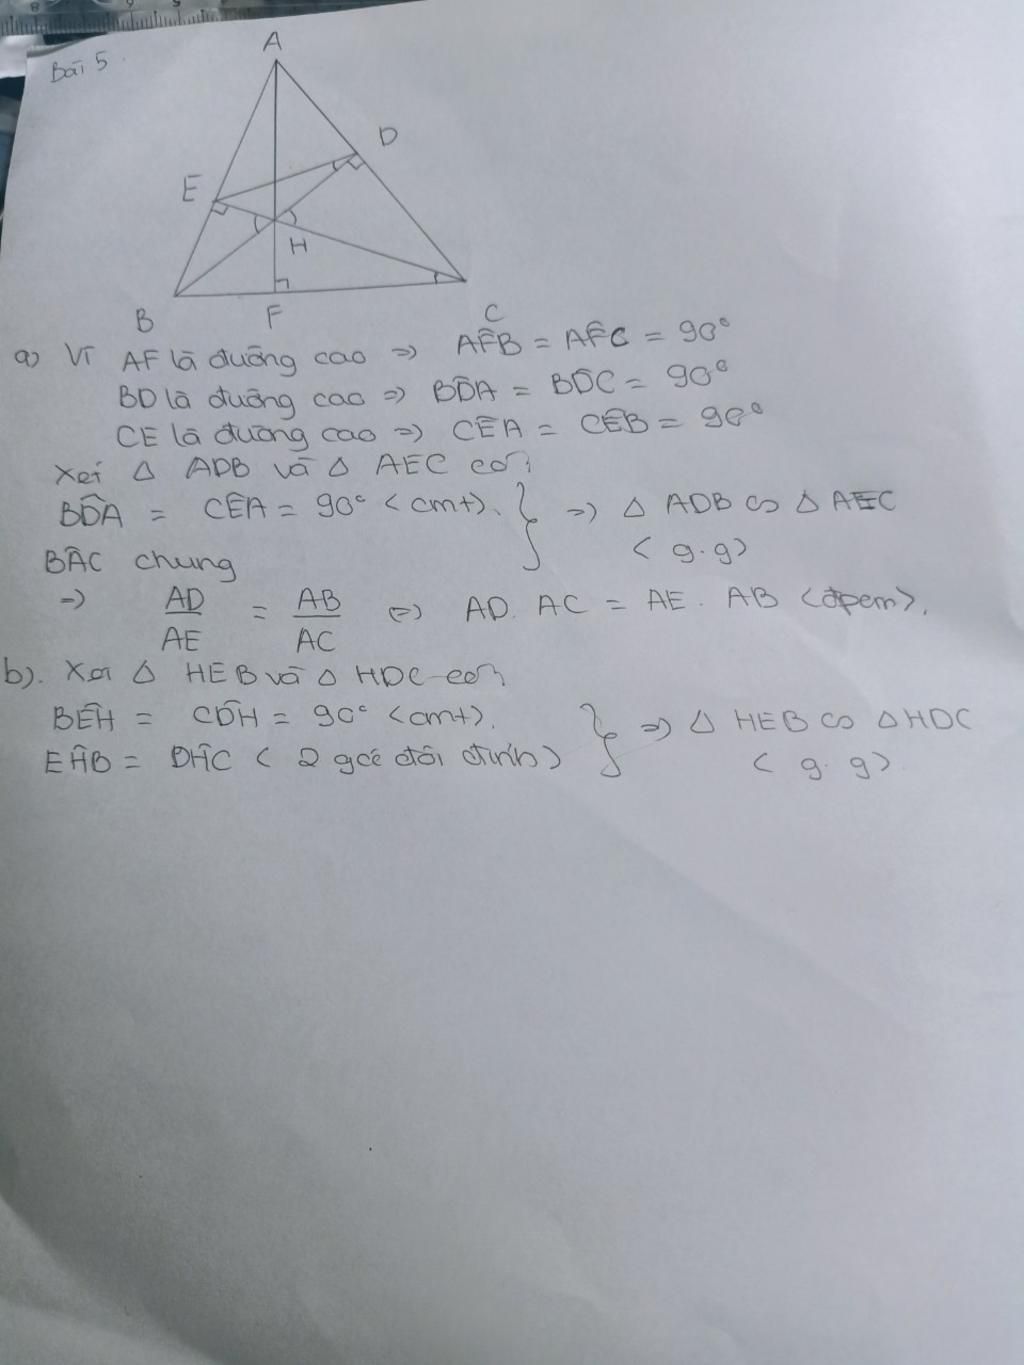 Bài 5
A
D
E
H
B F C
a) Vì AF là đường cao => AF̂B = AF̂C = 90°
BD là đường cao => BD̂A = BD̂C = 90°
CE là đường cao => CÊA = CÊB = 90°
Xét △ ADB và △ AEC có:
BD̂A = CÊA = 90° <cmt>. } => △ ADB ∽ △ AEC
BÂC chung < g.g>
=> AD/AE = AB/AC <=> AD. AC = AE. AB <đpcm>.
b). Xét △ HEB và △ HDC có:
BÊH = CD̂H = 90° <cmt>. } => △ HEB ∽ △HDC
EĤB = DĤC < 2 góc đối đỉnh> < g.g>.